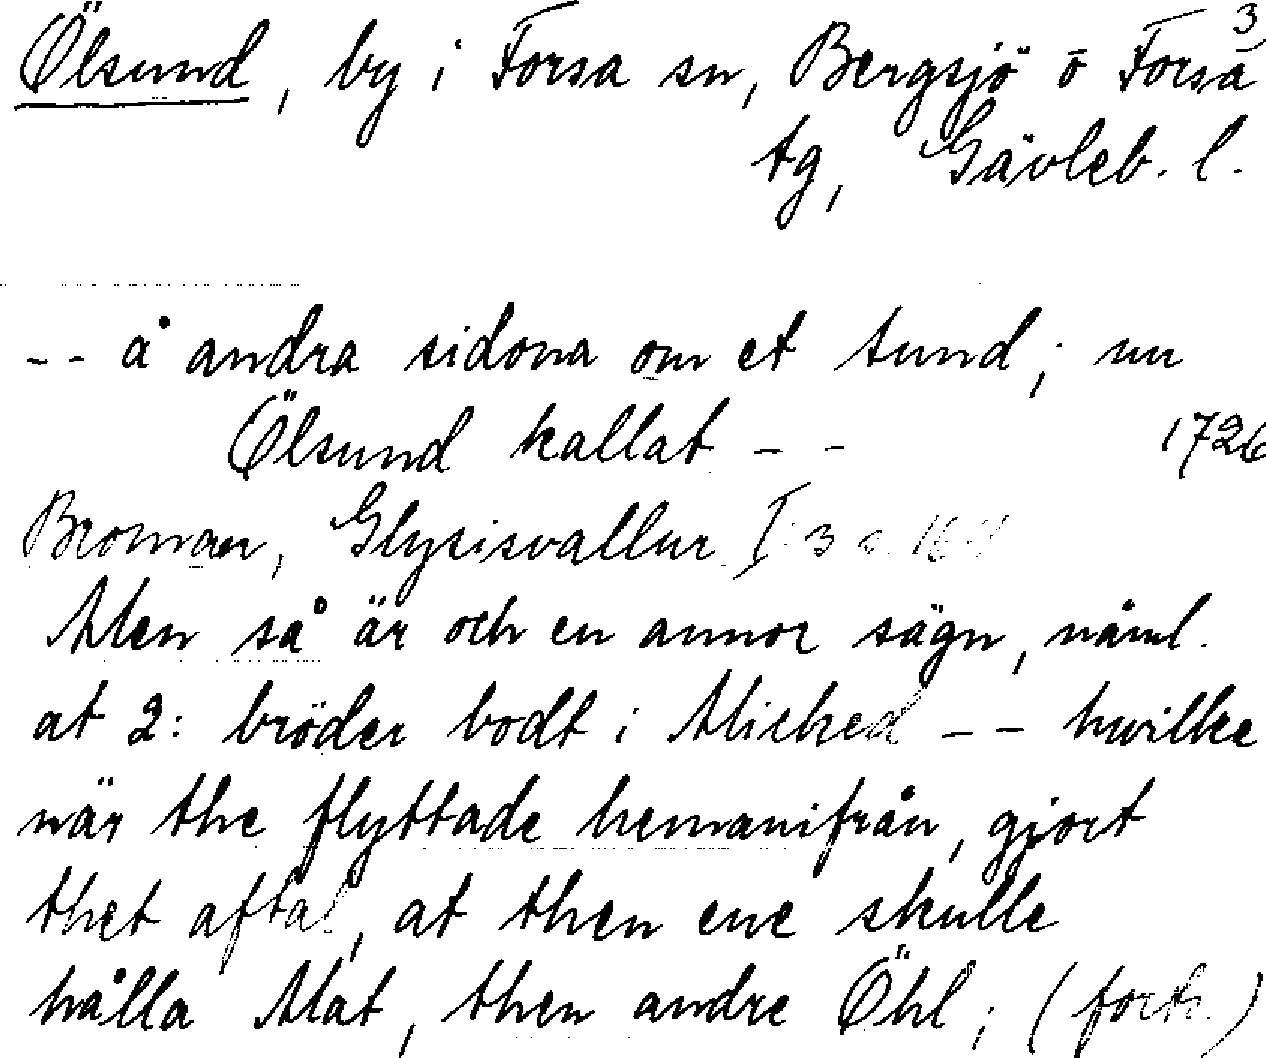 3
Ölsund, by i Forsa sn, Bergsjö o Forsa
tg, Gävleb. l.
-- å andra sidona om et sund; nu
Ölsund kallat -- 1726
Broman, Glysisvallur I: 3 s.
Men så är och en annor sägn, näml.
at 2: bröder bodt i Micked -- hwilke
när the flyttade hemanifrån, gjort
thet aftal, at then ene skulle
hålla Mat, then andre Öhl; (forts.)